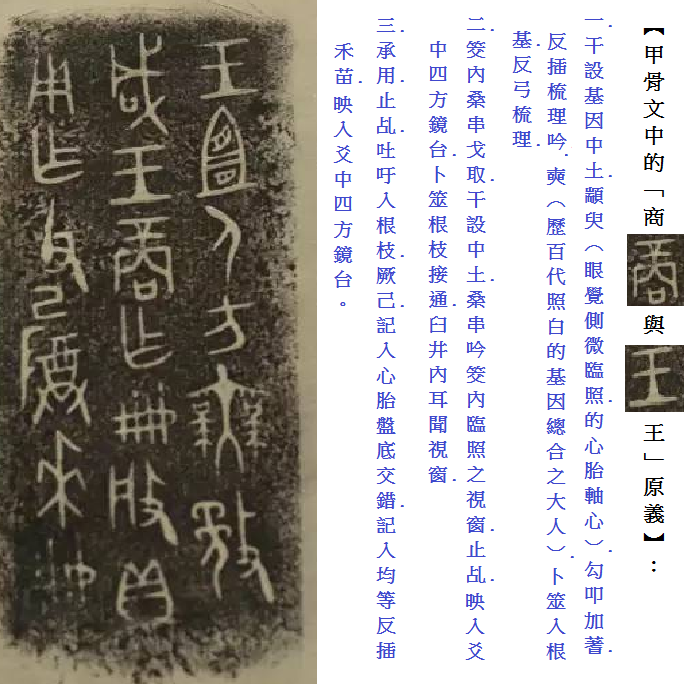 【甲骨文中的「商商與王王」原義】：
一.干設基因中土.顓臾（眼覺側微臨照.的心胎軸心）.勾叩加著.
反插梳理吟.奭（歷百代照白的基因總合之大人）.卜筮入根
基.反弓梳理.
二.筊內桑串戈取.干設中土.桑串吟筊內臨照之視窗.止乩.映入爻
中四方鏡台.卜筮根枝接通.臼井內耳聞視窗.
三.承用.止乩.吐吁入根枝.厥己.記入心胎盤底交錯.記入均等反插
禾苗.映入爻中四方鏡台。
王宜人方無敄
咸王商乍冊般貝
用乍父己尊來冊